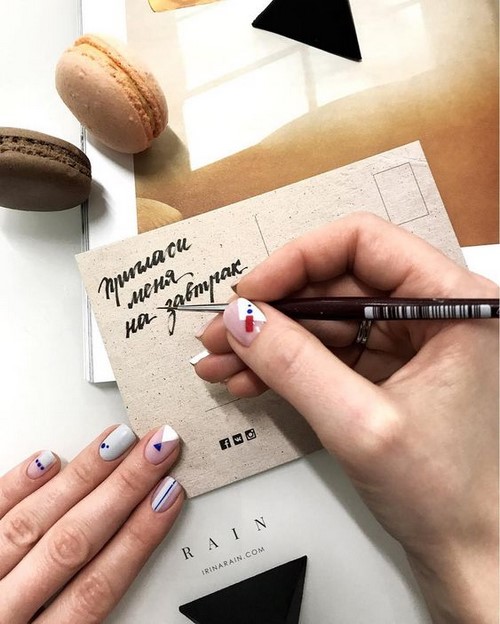 Пригласи
меня
на завтрак
RAIN
IRINARAIN.COM